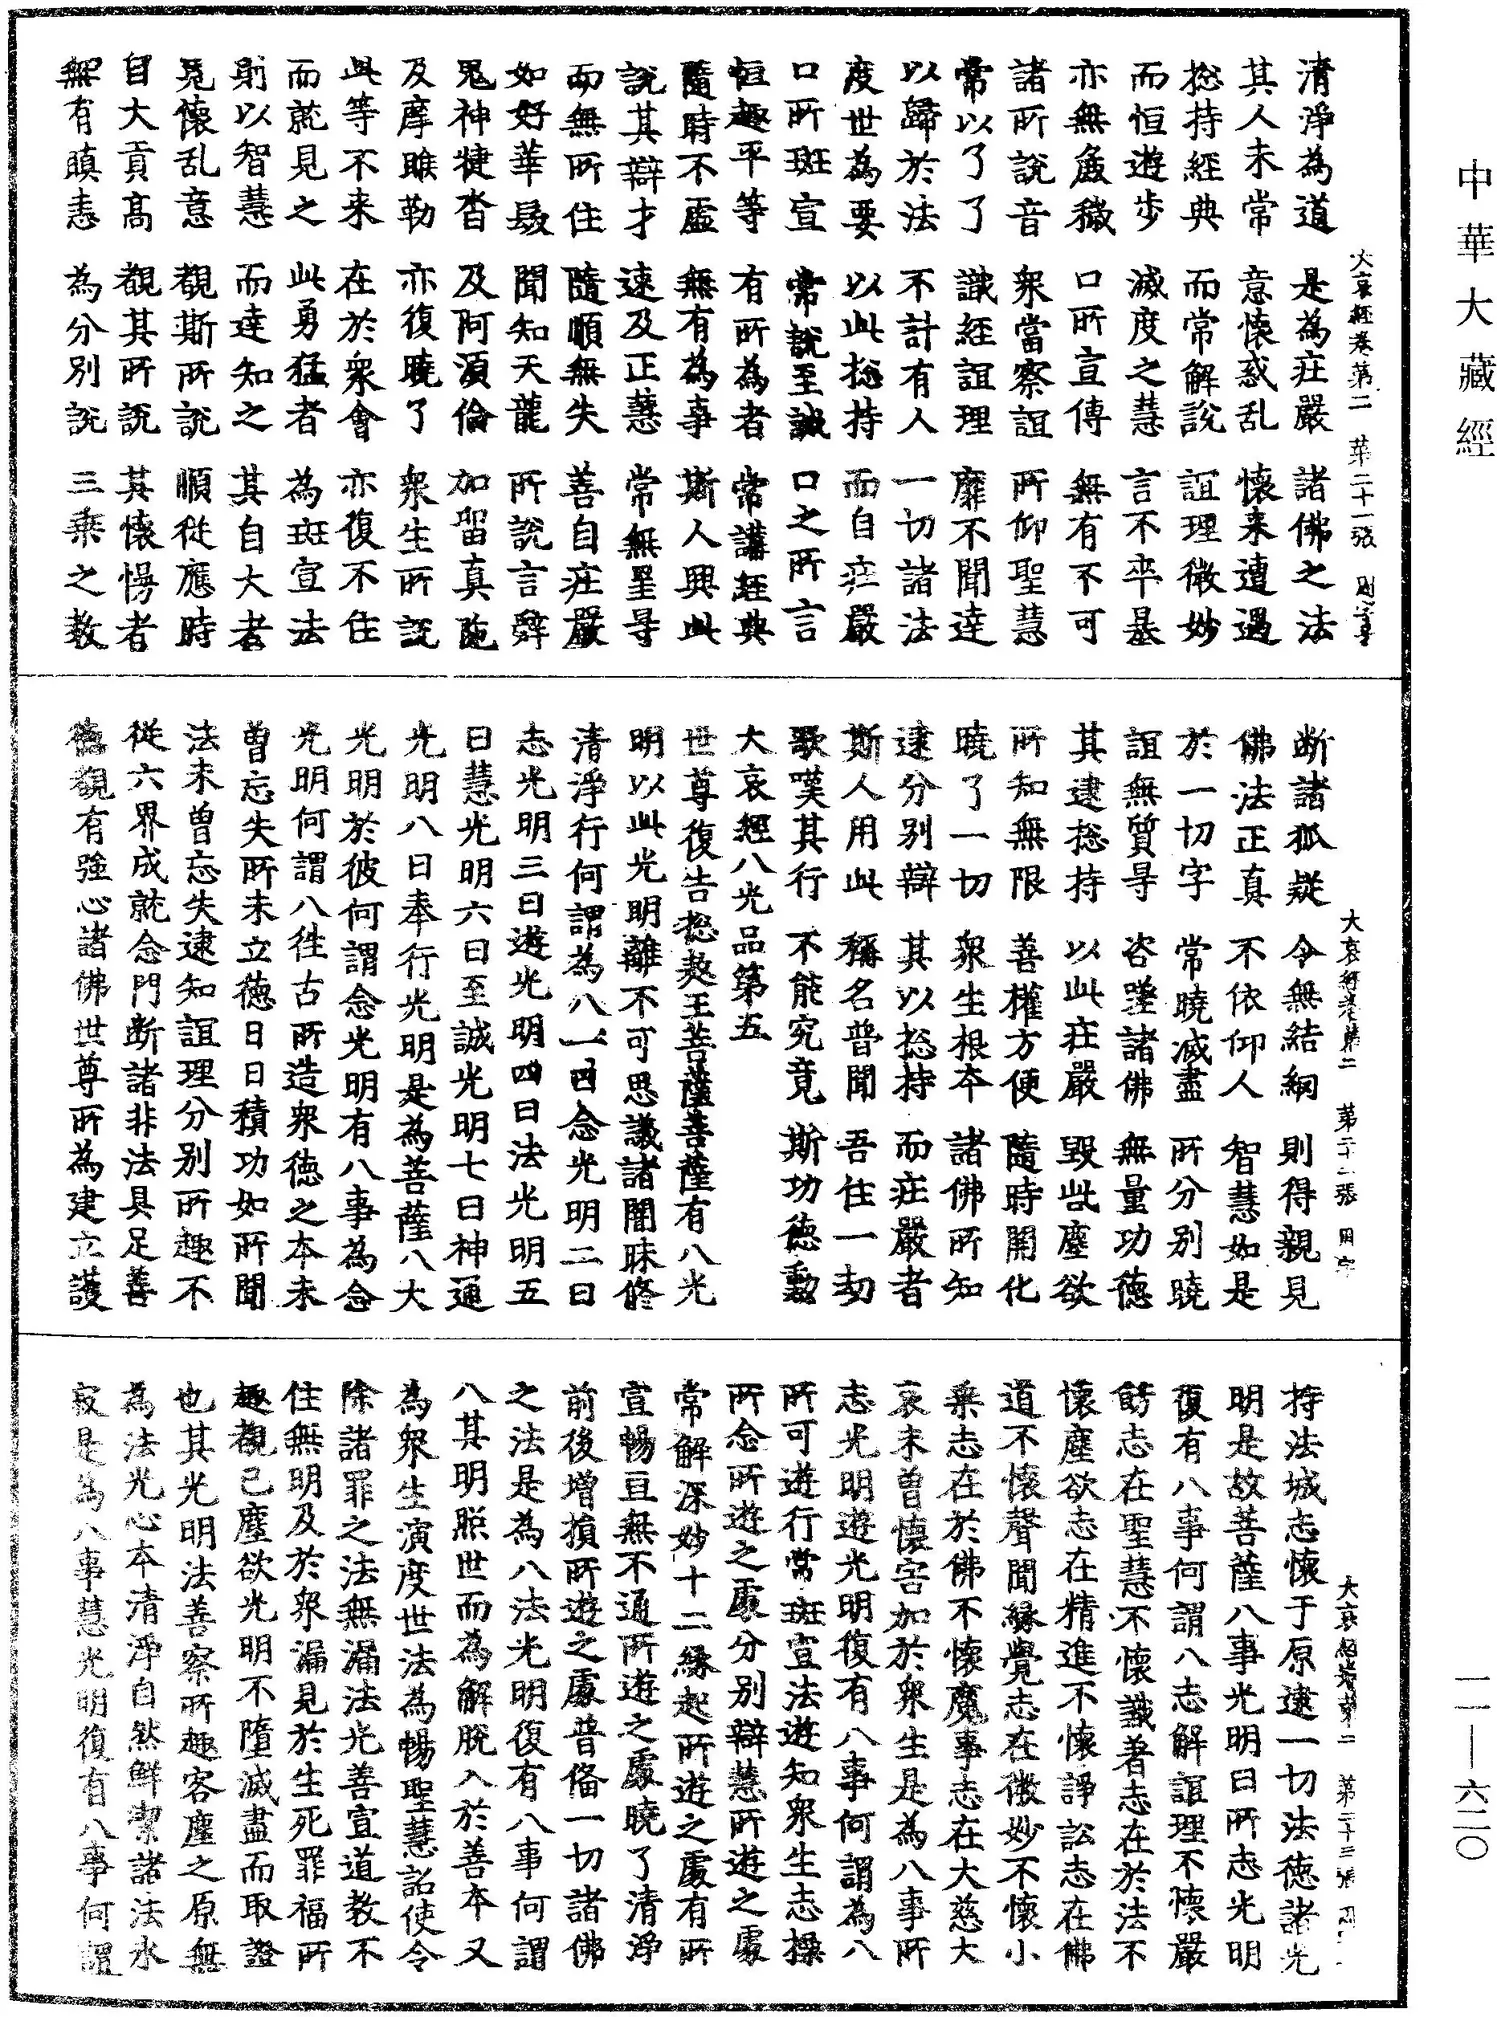 中華大藏經
一一—六二〇
清淨為道　是為庄嚴　諸佛之法
其人未常　意懷惑乱　懷来遭遇
捴持經典　而常解說　誼理微妙
而恒遊步　滅度之慧　言不卒暴
亦無麁穢　口所宣傳　無有不可
諸所說音　衆當察誼　所仰聖慧
常以了了　識經誼理　靡不聞達
以歸於法　不計有人　一切諸法
度世為要　以此捴持　而自庄嚴
口所班宣　常說至誠　口之所言
恒趣平等　有所為者　常講經典
隨時不虛　無有為事　斯人興此
說其辯才　速及正慧　常無罣㝵
而無所住　隨順無失　善自庄嚴
如好華鬘　聞知天龍　所說言辤
鬼神揵沓　及阿湏倫　加留真陁
及摩睺勒　亦復曉了　衆生所說
此等不来　在於衆會　亦復不住
而就見之　此勇猛者　為班宣法
則以智慧　而達知之　其自大者
冤懷乱意　觀斯所說　順從應時
自大貢髙　觀其所說　其懷慢者
無有瞋恚　為分別說　三乘之教
大哀經卷第二　第二十一張
断諸狐疑　令無結網　則得親見
佛法正真　不依仰人　智慧如是
於一切字　常曉滅盡　所分別曉
誼無質㝵　咨嗟諸佛　無量功德
其逮捴持　以此庄嚴　毀此塵欲
所知無限　善權方便　隨時開化
曉了一切　衆生根夲　諸佛所知
逮分別辯　其以捴持　而庄嚴者
斯人用此　稱名普聞　吾住一劫
歌嘆其行　不能究竟　斯功德勳
大哀經八光品第五
世尊復告捴敖王菩薩菩薩有八光
明以此光明離不可思議諸闇昧修
清淨行何謂為八一曰念光明二曰
志光明三曰遊光明四曰法光明五
曰慧光明六曰至誠光明七曰神通
光明八曰奉行光明是為菩薩八大
光明於彼何謂念光明有八事為念
光明何謂八徃古所造衆德之本未
曽忘失所未立德日日積功如所聞
法未曽忘失逮知誼理分別所趣不
從六界成就念門断諸非法具足善
德觀有強心諸佛世尊所為建立護
大哀經卷第二　第二十二張
持法城志懷于原逮一切法德諸光
明是故菩薩八事光明曰所志光明
復有八事何謂八志解誼理不懷嚴
餝志在聖慧不懷識著志在於法不
懷塵欲志在精進不懷諍訟志在佛
道不懷聲聞緣覺志在微妙不懷小
乘志在於佛不懷魔事志在大慈大
哀未曽懷害加於衆生是為八事所
志光明遊光明復有八事何謂為八
所可遊行常班宣法遊知衆生志操
所念所遊之處分別辯慧所遊之處
常解深妙十二緣起所遊之處有所
宣暢亘無不通所遊之處曉了清淨
前後增損所遊之處普俻一切諸佛
之法是為八法光明復有八事何謂
八其明照世而為解脫入於善本又
為衆生演度世法為暢聖慧詔使令
除諸罪之法無漏法光善宣道教不
住無明及於衆漏見於生死罪福所
趣觀已塵欲光明不墮滅盡而取證
也其光明法善察所趣客塵之原無
為法光心本清淨自然鮮潔諸法永
寂是為八事慧光明復有八事何謂
大哀經卷第二　第二十三張